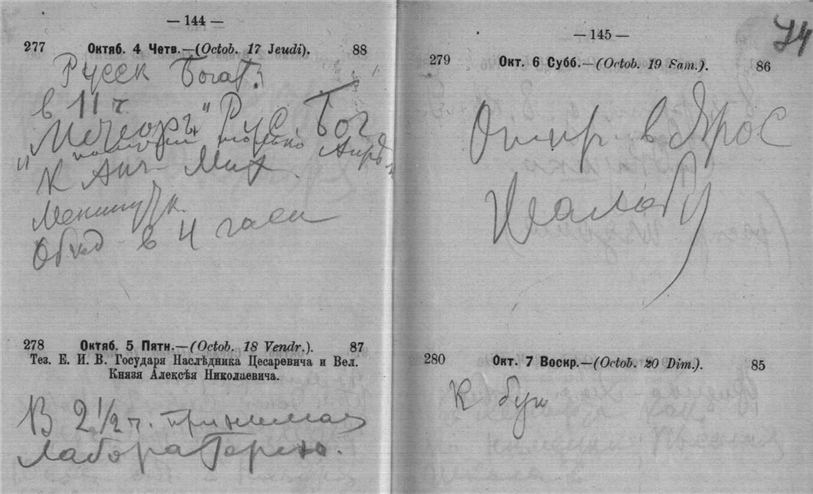 — 144 —
277 Октяб. 4 Четв.—(Octob. 17 Jeudi). 88
Русск Богат.
в 11 ч
"Метеоръ" Рус. Бог
К Анч Мих.
Обед в 4 часа
278 Октяб. 5 Пятн.—(Octob. 18 Vendr.). 87
Тез. Е. И. В. Государя Наслѣдника Цесаревича и Вел.
Князя Алексѣя Николаевича.
В 2½ ч. принимал
Лабораторию.
— 145 —
74
279 Окт. 6 Субб.—(Octob. 19 Sam.). 86
Отпр. в Ярос
Жалобу
280 Окт. 7 Воскр.—(Octob. 20 Dim.). 85
К